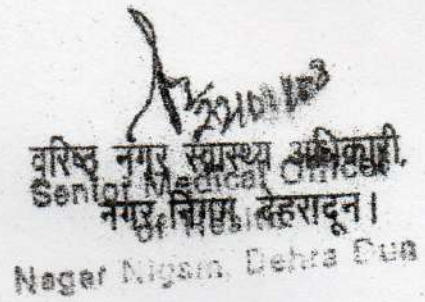 वरिष्ठ नगर स्वास्थ्य अधिकारी,
Senior Medical Officer
नगर निगम देहरादून।
of Health
Nagar Nigam, Dehra Dun